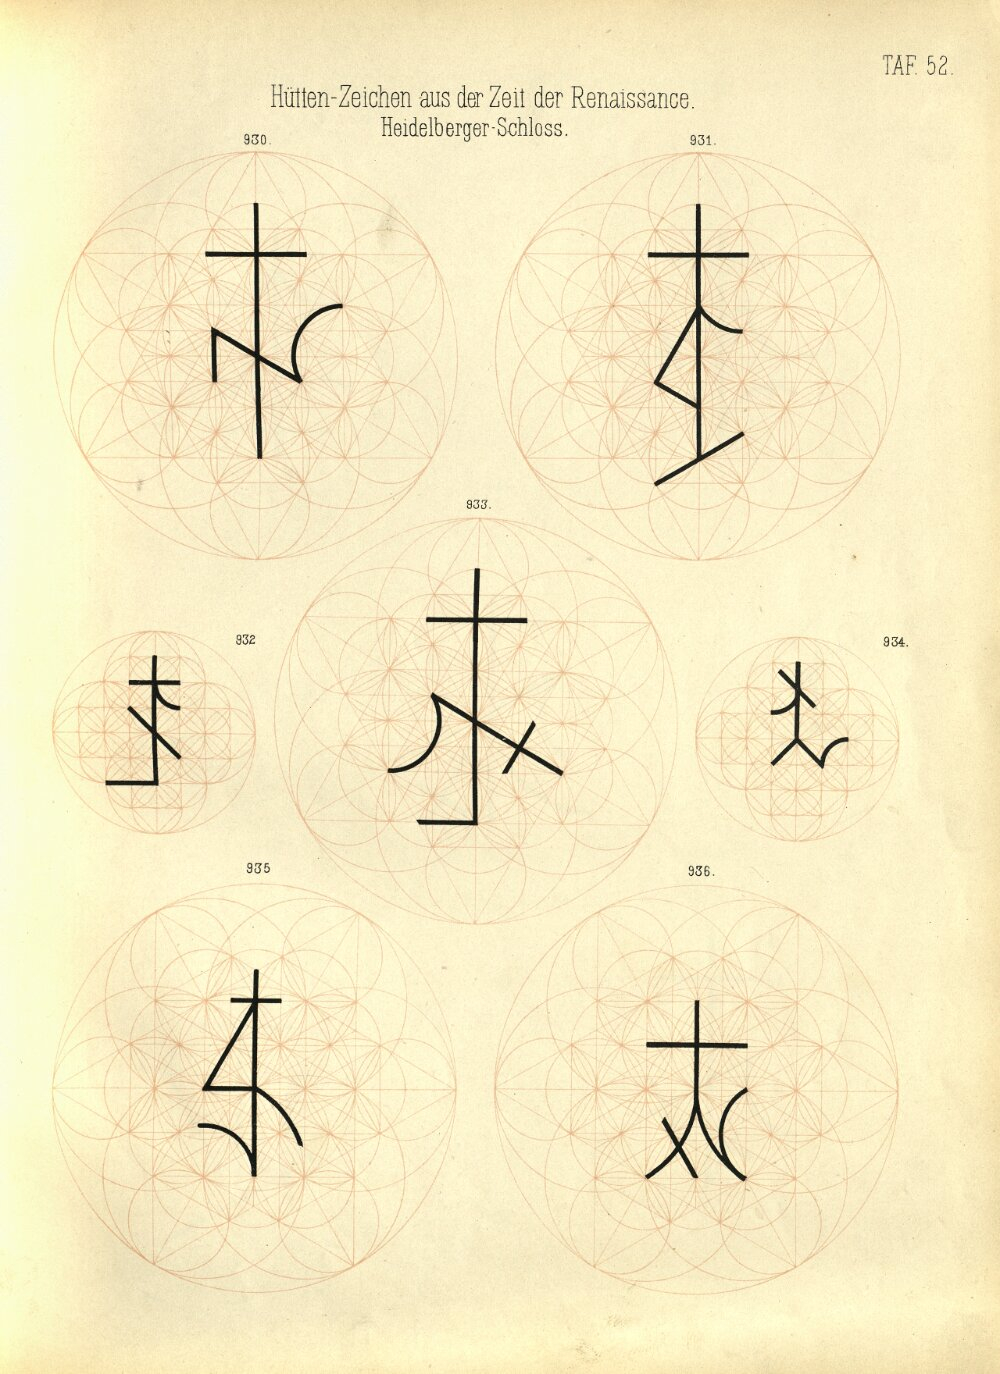 TAF. 52.
Hütten-Zeichen aus der Zeit der Renaissance.
Heidelberger-Schloss.
930.
931.
933.
932
934.
935
936.